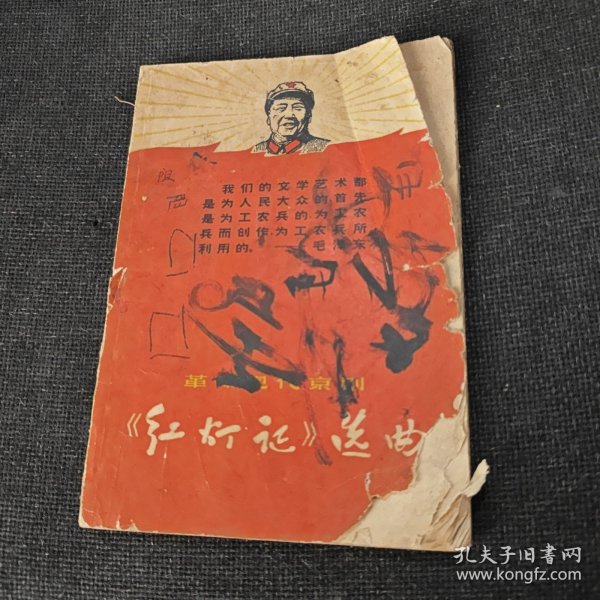 我们的文学艺术都
是为人民大众的首先
是为工农兵的为工农
兵而创作为工农兵所
利用的。 毛泽东
革 现代京剧
《红灯记》选曲
孔夫子旧书网
www.kongfz.com